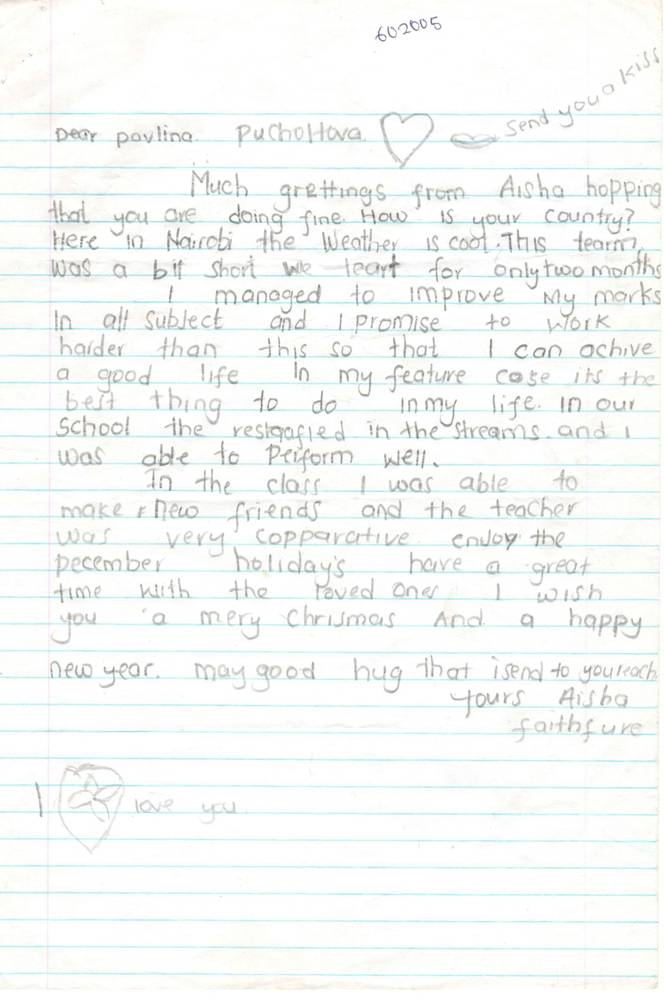 602005
send you a kiss
Dear pavlina. Pucholtova.
Much grettings from Aisha hopping
that you are doing fine. How is your country?
Here in Nairobi the Weather is cool. This tearm
was a bit short we leart for only two months
I managed to improve My marks
In all subject and I promise to work
harder than this so that I can achive
a good life In my feature cose its the
best thing to do in my life. In our
School the in the streams. and I
was able to Perform well.
In the class I was able to
make new friends and the teacher
was very copparative enjoy the
December holiday's have a great
time with the loved ones I wish
you a mery Chrismas And a happy
new year. may good hug that i send to you reach
yours Aisha
faithfure
I love you